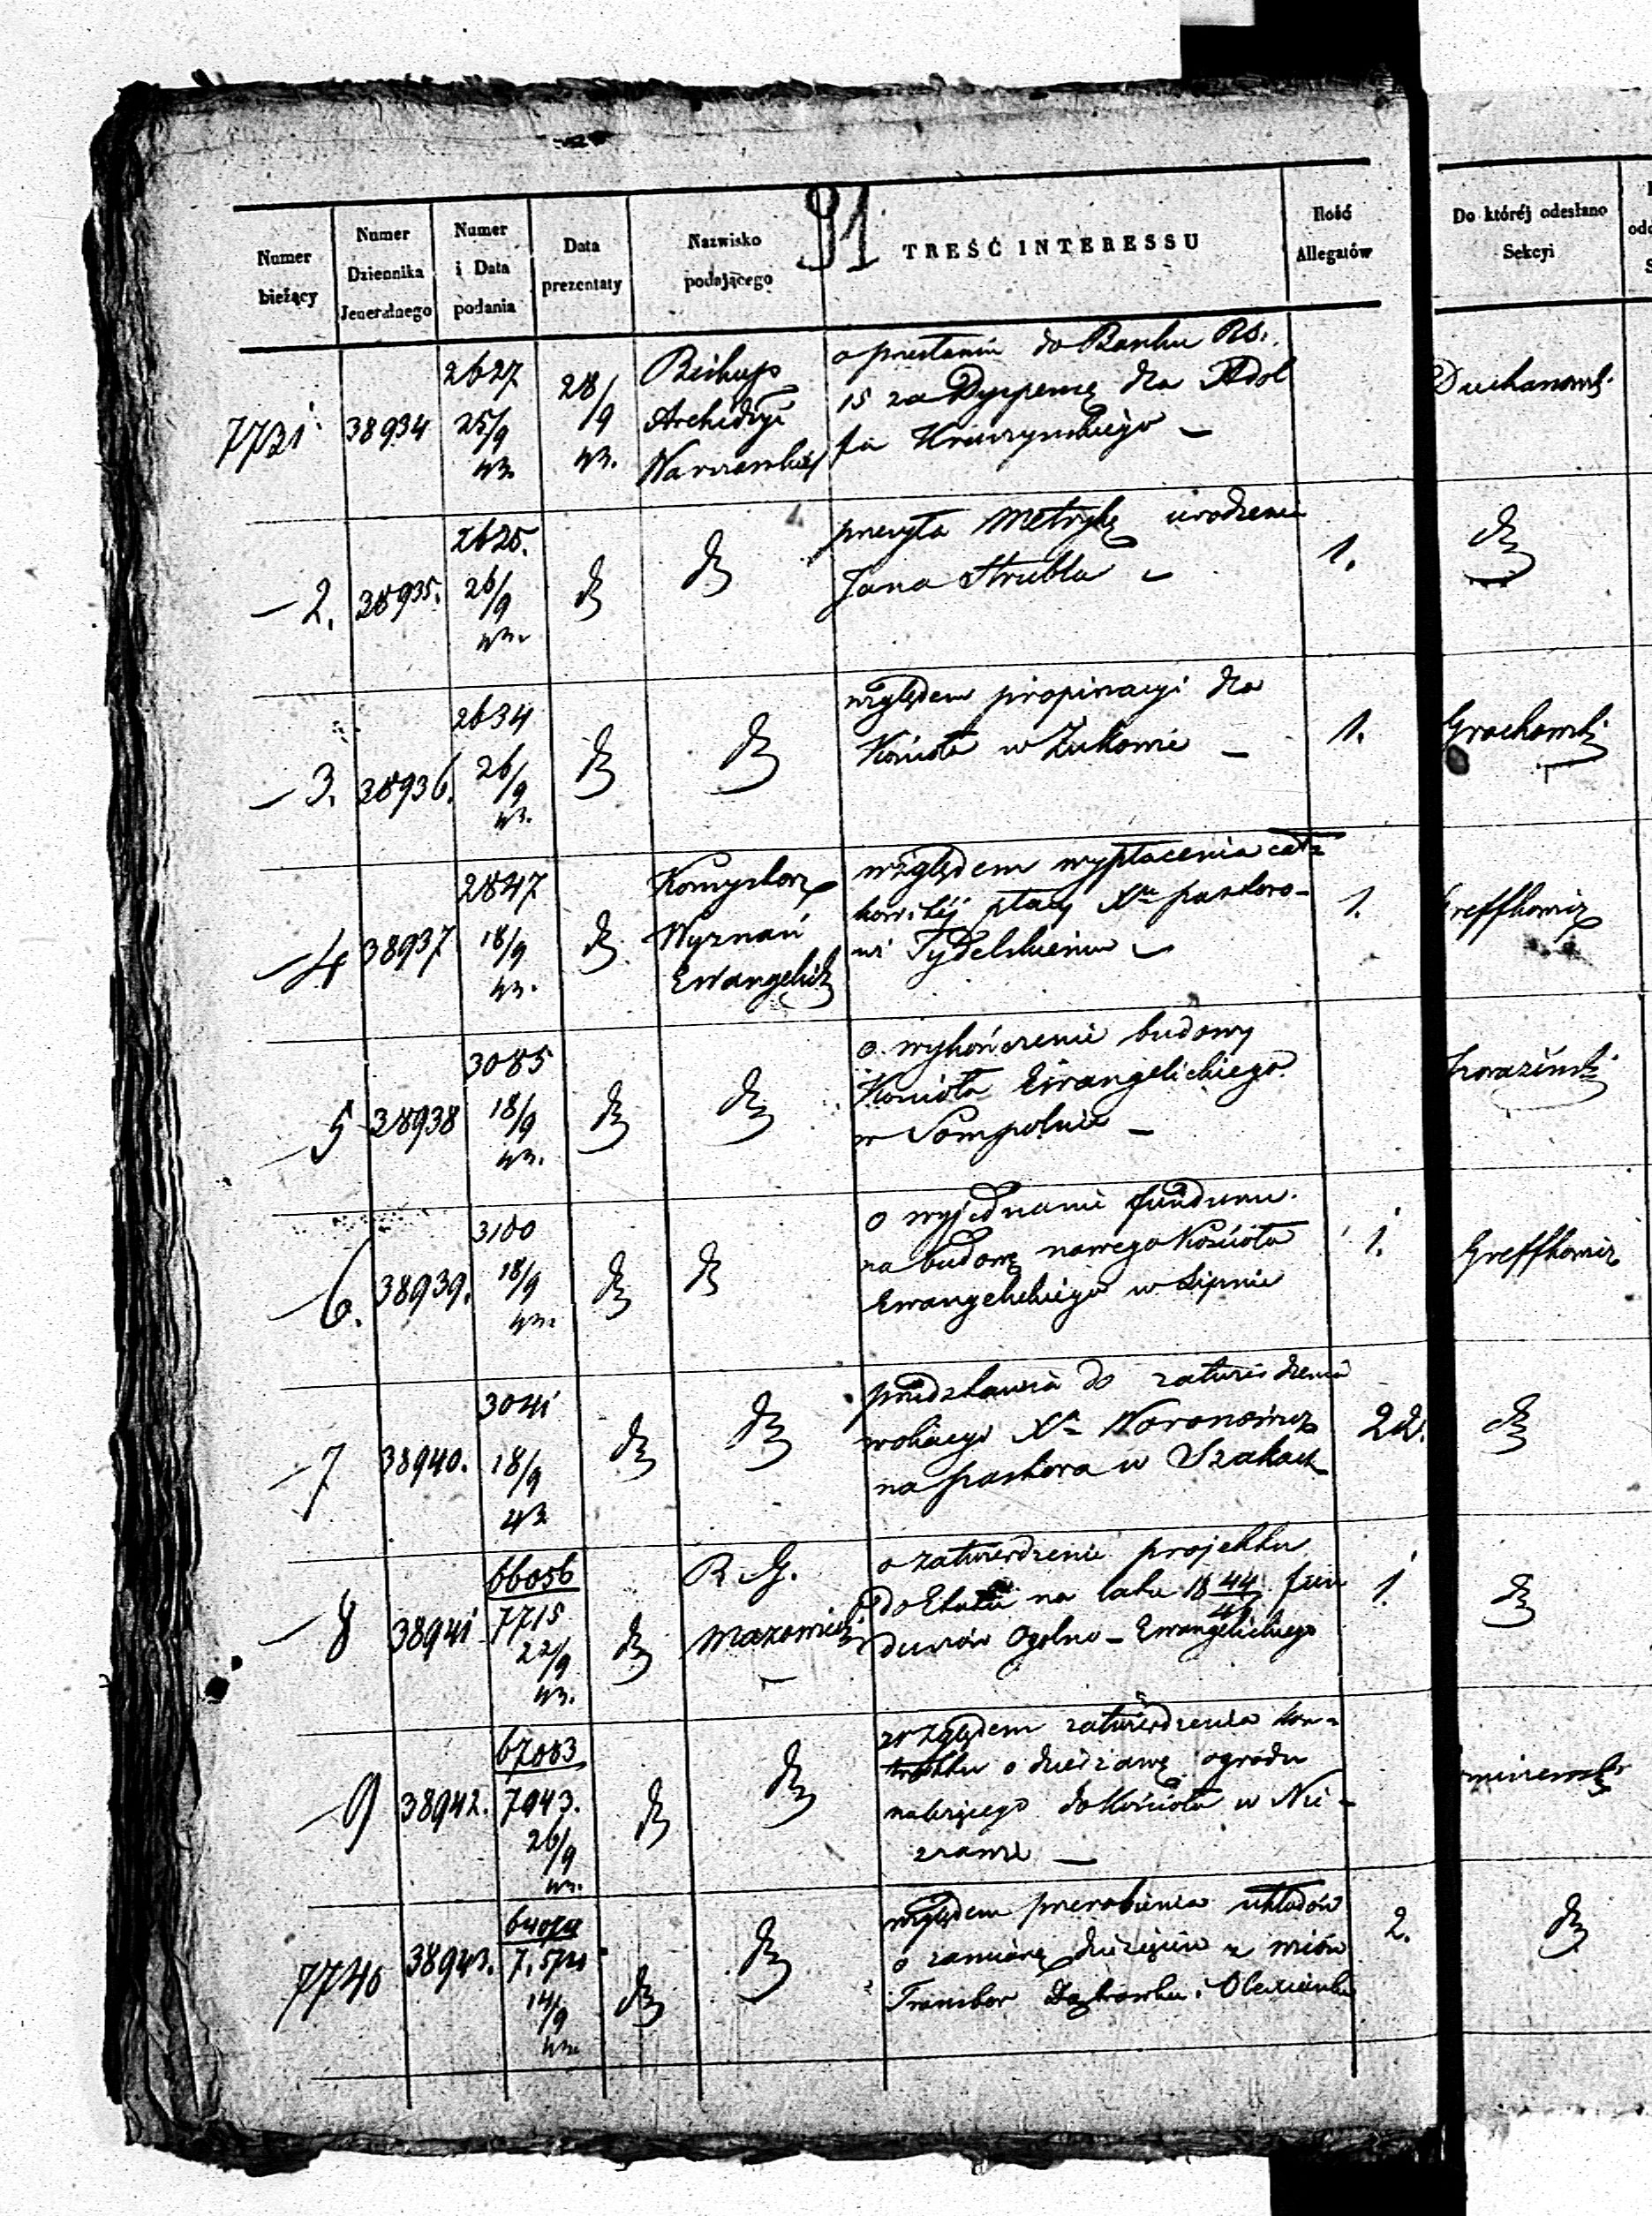 91
Numer bieżący
Numer Dziennika Jeneralnego
Numer i Data podania
Data prezentaty
Nazwisko podającego
TREŚĆ INTERESSU
Ilość Allegatów
Do któréj odesłano Sekcyi
7731 38934 2627 25/9 43. 28/9 43. Biskup
Archidyi
Warszawskiej
o przesłaniu do Banku Rs.
15 za Dyspensę dla Adol
fa
2. 38935. 2625. 26/9 43.
przesyła Metrykę urodzenia
Jana Strubla
1.
3. 38936. 2634 26/9 43.
względem propinacyi dla
Kościoła w Żukowie
1. Grochowski
4 38937 2847 18/9 43. Konsystorz
Wyznań
Ewangelick
względem wypłacenia cał
kowitéj płacy Xdu pastoro-
wi Tydelskiemu
1.
5 38938 3085 18/9 43.
o wykończenie budowy
Kościoła Ewangelickiego
w Sompolnie
6. 38939. 3100 18/9 43.
o wyjednanie funduszu
na budowę nowego Kościoła
Ewangelickiego w Lipnie
1. Greffkowicz
7 38940. 3041 18/9 43
przedstawia do zatwierdzenia
wokacyi Xa Woronowicz
na pastora w Szakach
22.
8 38941 66056 7715 22/9 43. R. G.
Mazowiecki
o zatwierdzenie projektu
do Etatu na lata 18 44/49 fun
duszów Ogólno-Ewangelickiego
1
9 38942. 67083 7943. 26/9 43.
względem zatwierdzenia kon-
traktu o dzierżawę ogrodu
należącego do Kościoła w Nie-
7740 38943. 14/9 43.
względem przerobienia układów
o zamianę dziesięcin z wsiów
2.